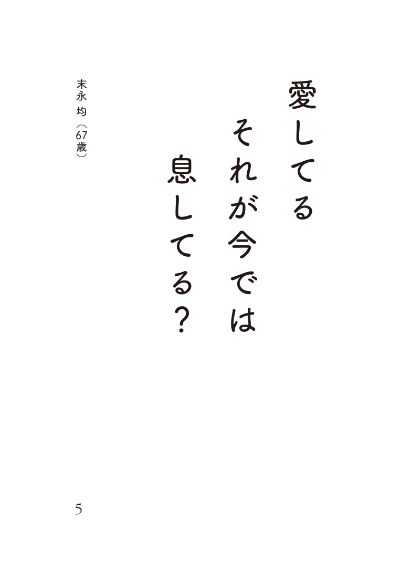 愛してる
それが今では
息してる？
末永 均（67歳）
5